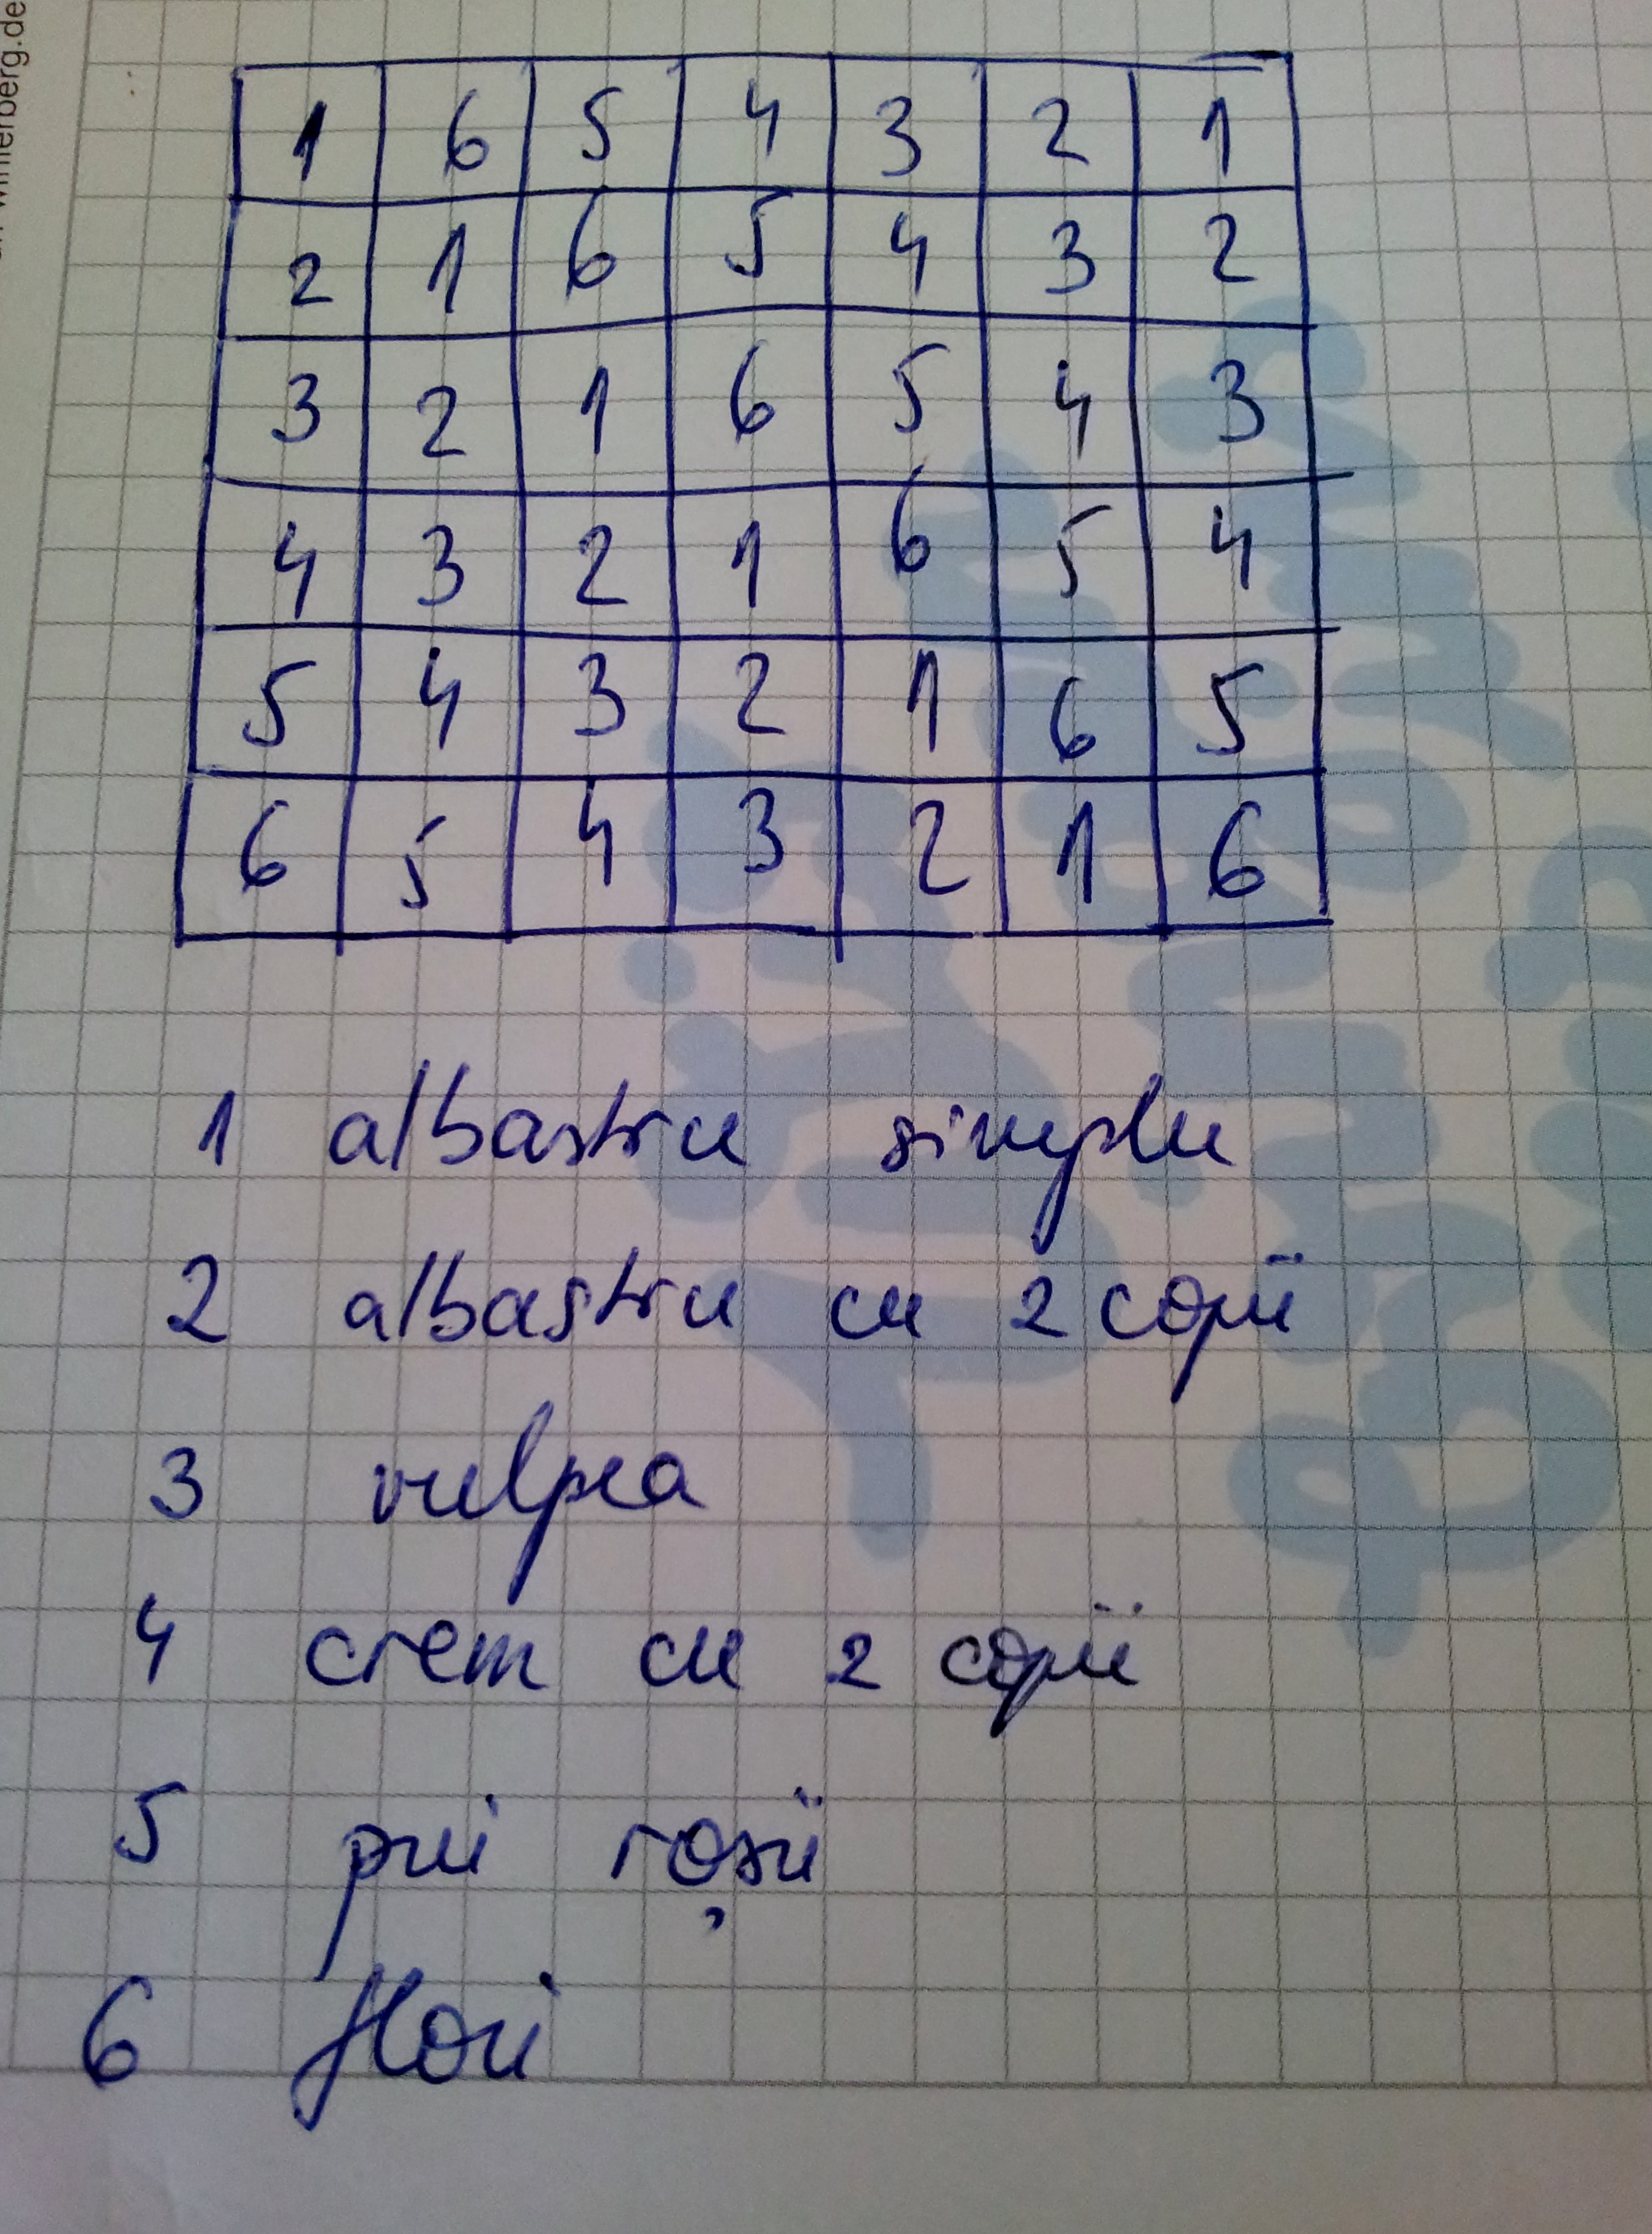 1 6 5 4 3 2 1
2 1 6 5 4 3 2
3 2 1 6 5 4 3
4 3 2 1 6 5 4
5 4 3 2 1 6 5
6 5 4 3 2 1 6
1 albastru simplu
2 albastru cu 2 copii
3 vulpea
4 crem cu 2 copii
5 pui roșii
6 flori